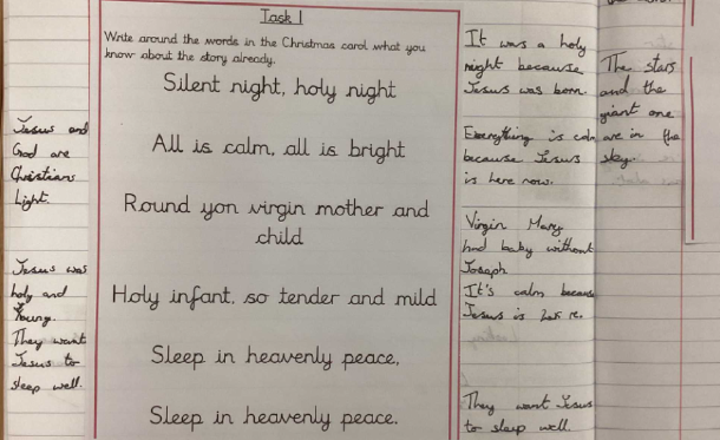 Task 1
Write around the words in the Christmas carol what you
know about the story already.
Silent night, holy night
All is calm, all is bright
Round yon virgin mother and
child
Holy infant, so tender and mild
Sleep in heavenly peace,
Sleep in heavenly peace.
Jesus and
God are
Christians
Light.
Jesus was
holy and
Young.
They want
Jesus to
sleep well.
It was a holy
night because
Jesus was born.
Everything is calm
because Jesus
is here now.
Virgin Mary
had baby without
Joseph
It's calm because
Jesus is
They want Jesus
to sleep well.
The stars
and the
giant one
are in the
sky.